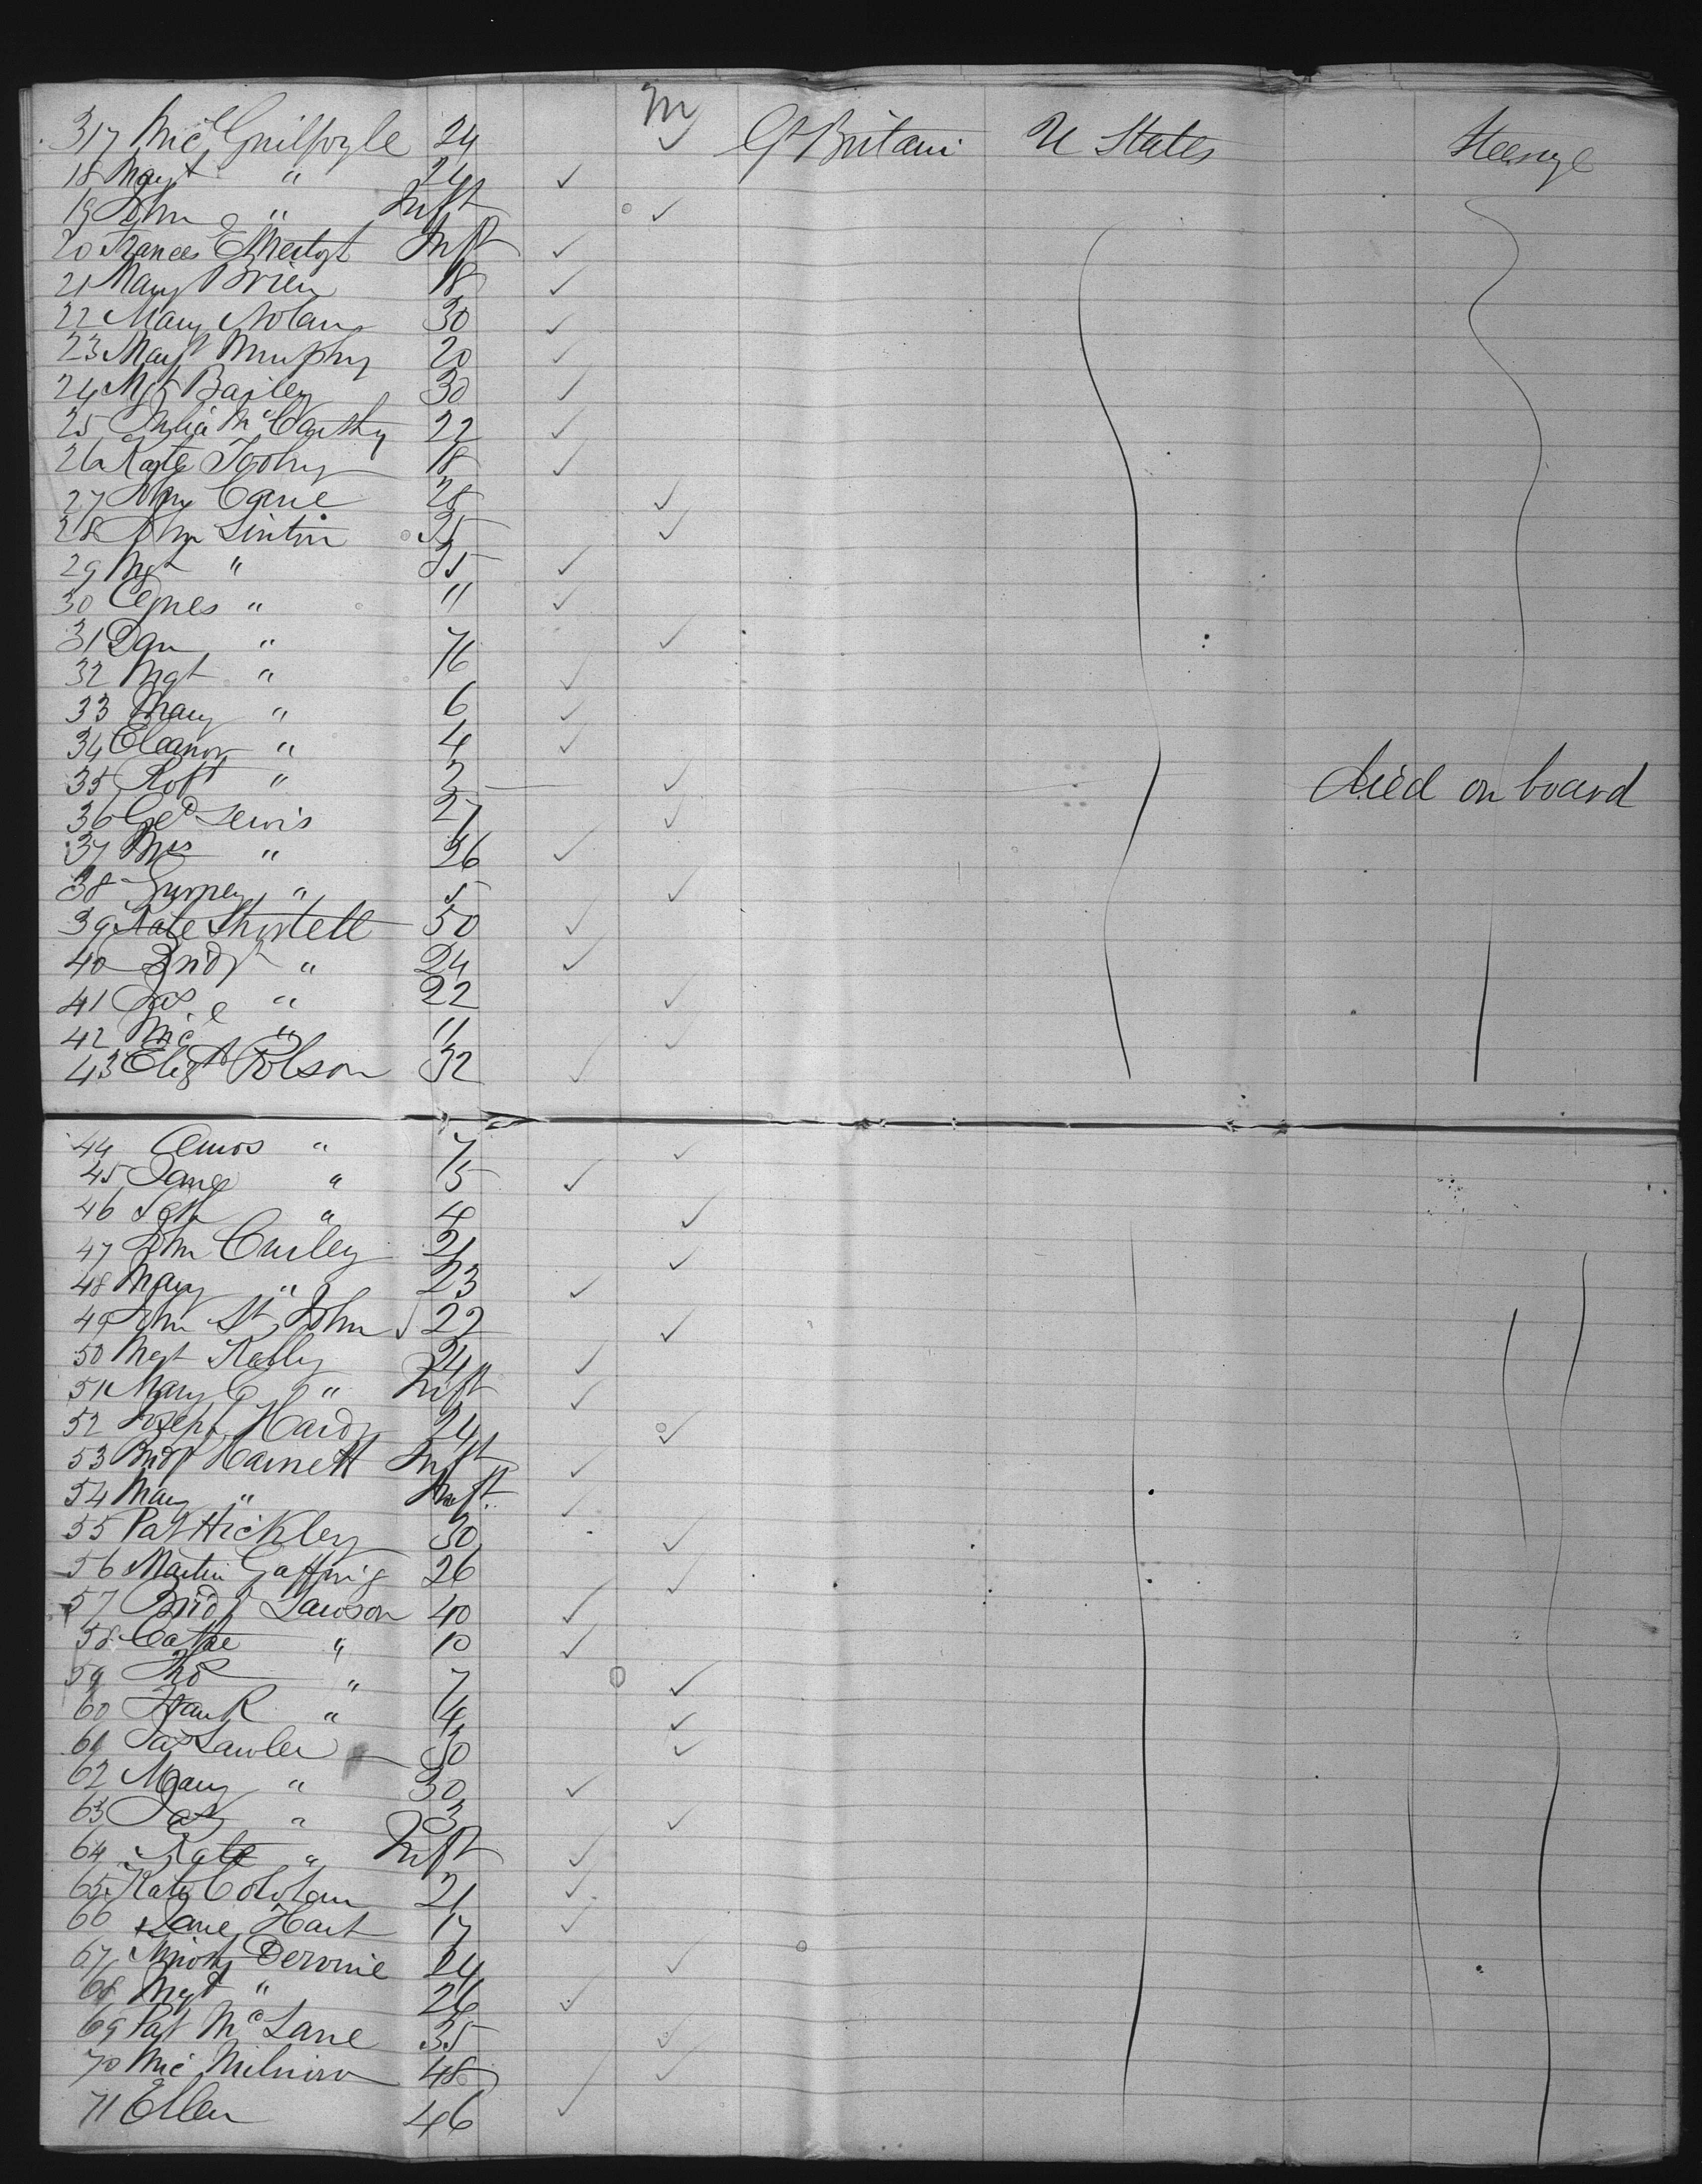 M
317 Micl Guilfoyle 24 ✓ Gt Britain U States Steerage
18 Margt " 24 ✓
19 John " Inft ✓
20 Frances E Inft ✓
21 Mary Brien 18 ✓
22 Mary Nolan 30 ✓
23 Margt Murphy 20 ✓
24 Mgt Bailey 30 ✓
25 Julia McCarthy 22 ✓
26 Kate Toohy 18 ✓
27 John Cane 28 ✓
28 John Linton 35 ✓
29 Mgt " 35 ✓
30 Agnes " 11 ✓
31 Dan " ✓
32 Mgt " ✓
33 Mary " 6 ✓
34 Eleanor " 4 ✓
35 Robt " 2 ✓ died on board
36 Geo Lewis 27 ✓
37 Mrs " 26 ✓
38 Gurney " 5 ✓
39 Kate Shortell 50 ✓
40 Bridgt " 24 ✓
41 Jas " 22 ✓
42 Micl " 11 ✓
43 Elizth Polson 32 ✓
44 Amos " 7 ✓
45 " 5 ✓
46 " 4 ✓
47 John Curley 21 ✓
48 Mary " 23 ✓
49 John St John 22 ✓
50 Mgt Kelly 24 ✓
51 Mary C " Inft ✓
52 Joseph Hardy 24 ✓
53 Bridgt Harnett Inft ✓
54 Mary " Inft ✓
55 Pat Hickley 30 ✓
56 Martin 26 ✓
57 Bridgt Lawson 40 ✓
58 Cathe " 10 ✓
59 Thos " 7 ✓
60 Frank " 4 ✓
61 Lawler 30 ✓
62 Mary " 30 ✓
63 " 3 ✓
64 Kate " Inft ✓
65 Kate 21 ✓
66 Jane Hart 17 ✓
67 24 ✓
68 Mgt " 26 ✓
69 Pat McLane 35 ✓
70 Mic 48 ✓
71 Ellen 46 ✓